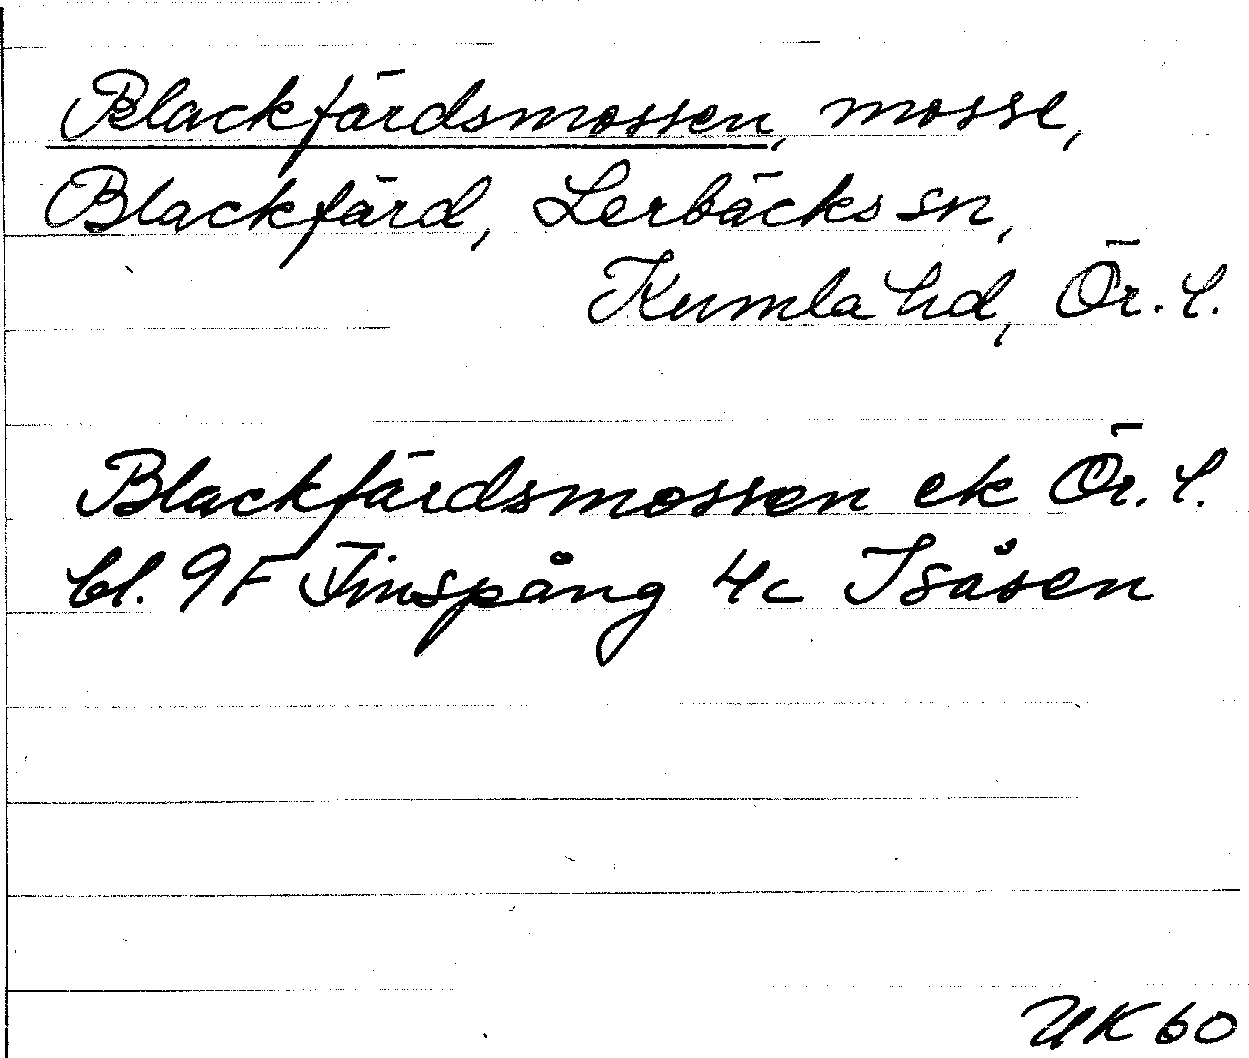 Blackfärdsmossen, mosse,
Blackfärd, Lerbäcks sn,
Kumla hd, Ör. l.
Blackfärdsmossen ek Ör. l.
bl. 9F Finspång 4c Isåsen
UK 60